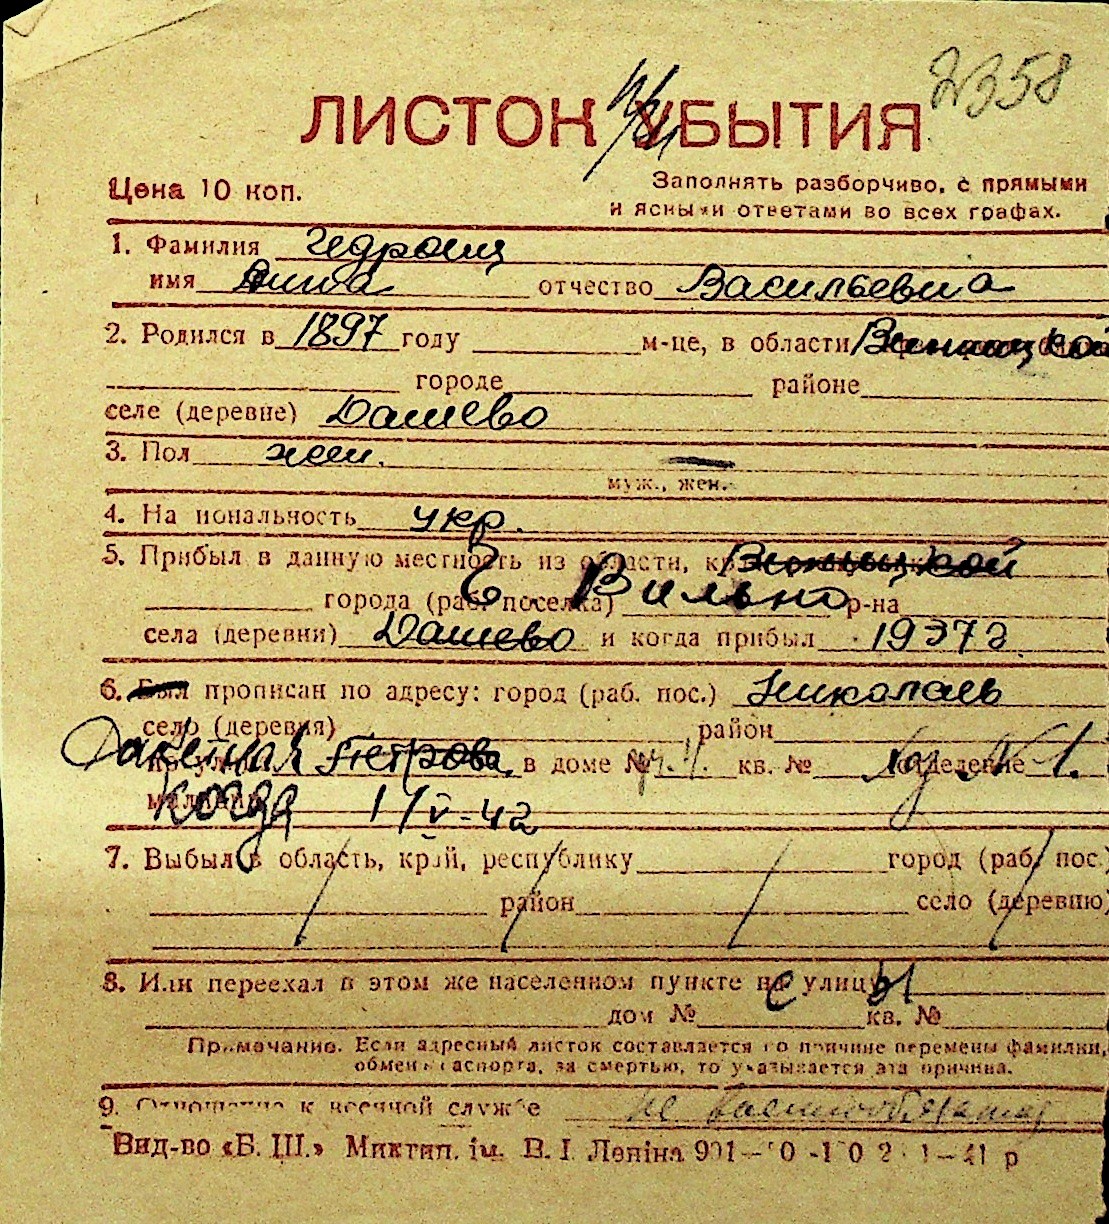 2358
ЛИСТОК УБЫТИЯ
Цена 10 коп.
Заполнять разборчиво, с прямыми
и ясными ответами во всех графах.
1. Фамилия
имя Анна отчество Васильевна
2. Родился в 1897 году м-це, в области Винницкой
городе районе
селе (деревне) Дашево
3. Пол жен.
муж., жен.
4. Национальность укр.
5. Прибыл в данную местность из области, Винницкой
города (раб. поселка) Вильно р-на
села (деревни) Дашево и когда прибыл 1937 г
6. Был прописан по адресу: город (раб. пос.) Николаев
село (деревня) район
Петрова в доме № кв. № отделение
когда 1/V-42
7. Выбыл в область, край, республику город (раб. пос.)
район село (деревню)
8. Или переехал в этом же населенном пункте на улицу
дом № кв. №
Примечание. Если адресный листок составляется по причине перемены фамилии,
обмена паспорта, за смертью, то указывается эта причина.
9. Отношение к военной службе не военнообязаная
Вид-во «Б. Ш.» Миктип. ім. В. І. Леніна